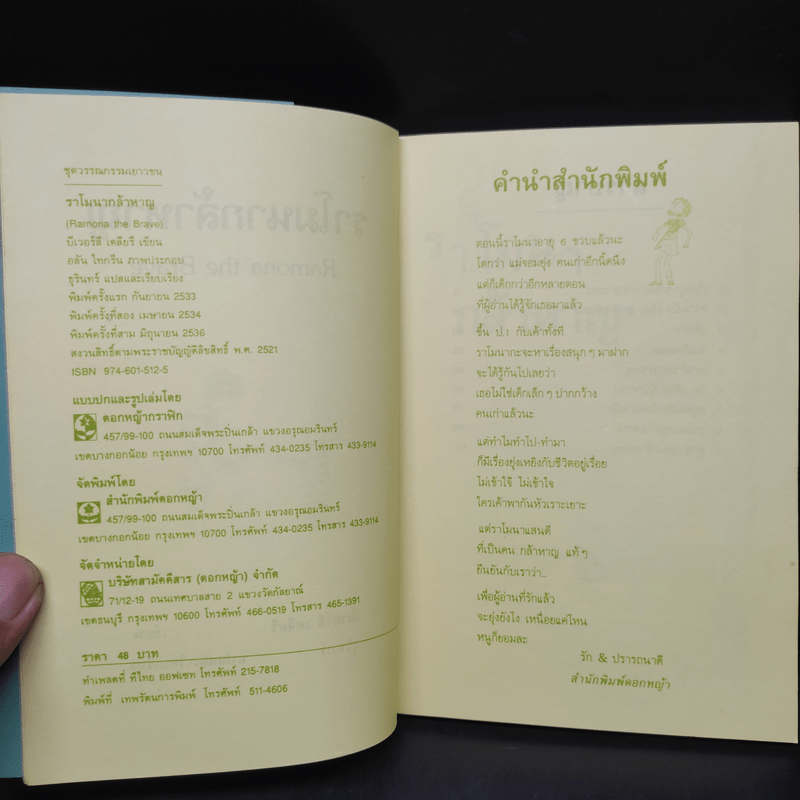 ชุดวรรณกรรมเยาวชน
ราโมนากล้าหาญ
(Ramona the Brave)
บีเวอร์ลี เคลียรี เขียน
อลัน ไทกรีน ภาพประกอบ
ธุรินทร์ แปลและเรียบเรียง
พิมพ์ครั้งแรก กันยายน 2533
พิมพ์ครั้งที่สอง เมษายน 2534
พิมพ์ครั้งที่สาม มิถุนายน 2536
สงวนสิทธิ์ตามพระราชบัญญัติลิขสิทธิ์ พ.ศ. 2521
ISBN 974-601-512-5
แบบปกและรูปเล่มโดย
ดอกหญ้ากราฟิก
457/99-100 ถนนสมเด็จพระปิ่นเกล้า แขวงอรุณอมรินทร์
เขตบางกอกน้อย กรุงเทพฯ 10700 โทรศัพท์ 434-0235 โทรสาร 433-9114
จัดพิมพ์โดย
สำนักพิมพ์ดอกหญ้า
457/99-100 ถนนสมเด็จพระปิ่นเกล้า แขวงอรุณอมรินทร์
เขตบางกอกน้อย กรุงเทพฯ 10700 โทรศัพท์ 434-0235 โทรสาร 433-9114
จัดจำหน่ายโดย
บริษัทสามัคคีสาร (ดอกหญ้า) จำกัด
71/12-19 ถนนเทศบาลสาย 2 แขวงวัดกัลยาณ์
เขตธนบุรี กรุงเทพฯ 10600 โทรศัพท์ 466-0519 โทรสาร 465-1391
ราคา 48 บาท
ทำเพลตที่ ทีไทย ออฟเซท โทรศัพท์ 215-7818
พิมพ์ที่ เทพรัตนการพิมพ์ โทรศัพท์ 511-4606
คำนำสำนักพิมพ์
ตอนนี้ราโมนาอายุ 6 ขวบแล้วนะ
โตกว่า แม่จอมยุ่ง คนเก่าอีกนิ้ดนึง
แต่ก็เด็กกว่าอีกหลายตอน
ที่ผู้อ่านได้รู้จักเธอมาแล้ว
ขึ้น ป.1 กับเค้าทั้งที
ราโมนากะจะหาเรื่องสนุก ๆ มาฝาก
จะได้รู้กันไปเลยว่า
เธอไม่ใช่เด็กเล็ก ๆ ปากกว้าง
คนเก่าแล้วนะ
แต่ทำไมทำไป-ทำมา
ก็มีเรื่องยุ่งเหยิงกับชีวิตอยู่เรื่อย
ไม่เข้าใจ๊ ไม่เข้าใจ
ใครเค้าพากันหัวเราะเยาะ
แต่ราโมนาแสนดี
ที่เป็นคน กล้าหาญ แท้ ๆ
ยืนยันกับเราว่า...
เพื่อผู้อ่านที่รักแล้ว
จะยุ่งยังไง เหนื่อยแค่ไหน
หนูก็ยอมละ
รัก & ปรารถนาดี
สำนักพิมพ์ดอกหญ้า